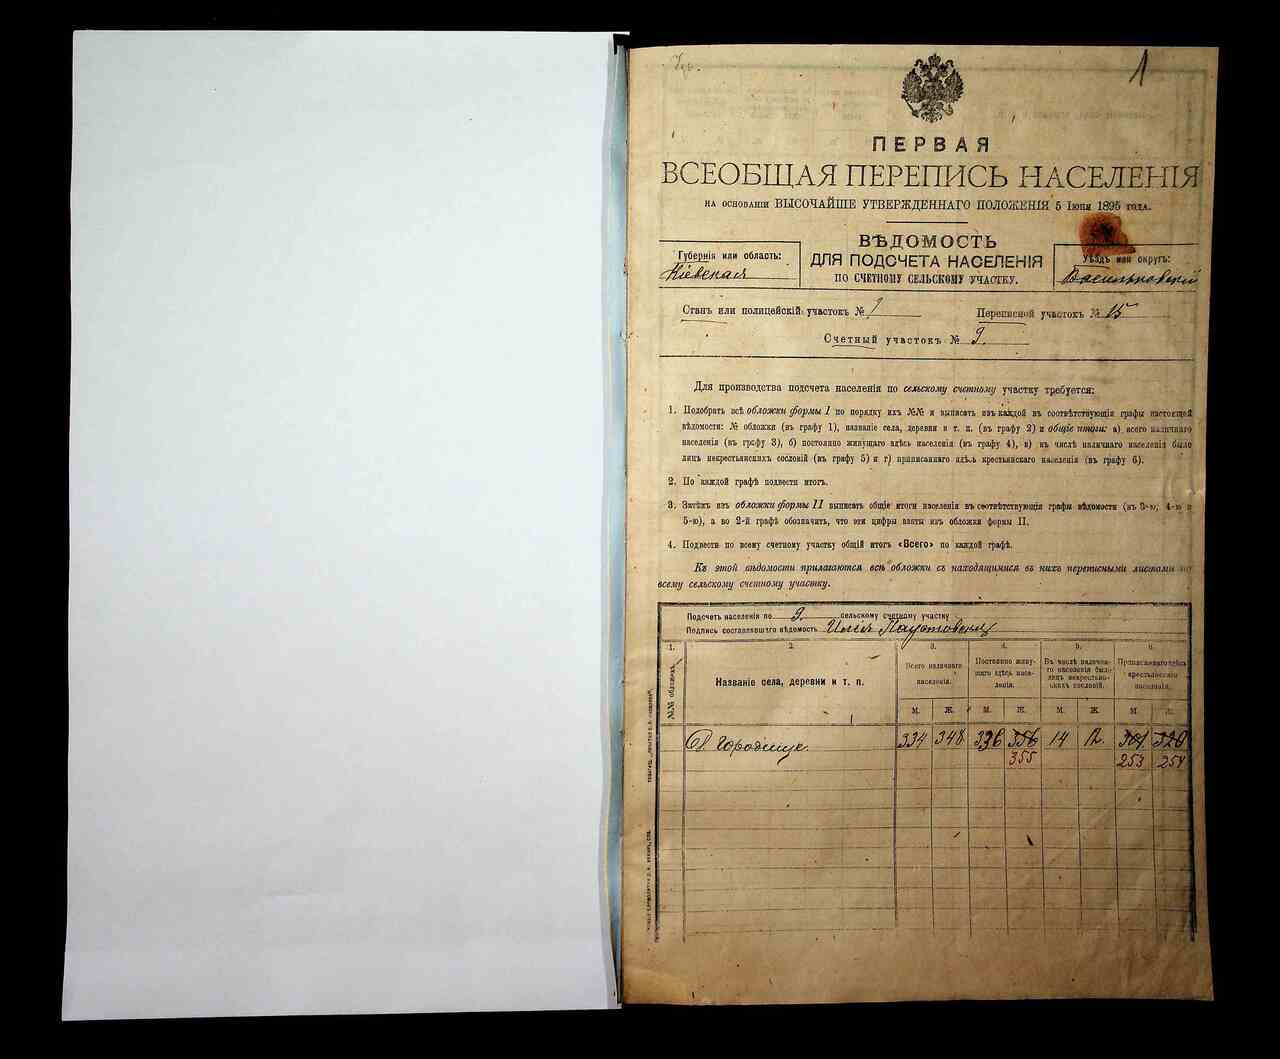 1
ПЕРВАЯ
ВСЕОБЩАЯ ПЕРЕПИСЬ НАСЕЛЕНІЯ
НА ОСНОВАНІИ ВЫСОЧАЙШЕ УТВЕРЖДЕННАГО ПОЛОЖЕНІЯ 5 Іюня 1895 ГОДА.
ВѢДОМОСТЬ
ДЛЯ ПОДСЧЕТА НАСЕЛЕНІЯ
ПО СЧЕТНОМУ СЕЛЬСКОМУ УЧАСТКУ.
Губернія или область:
Кіевская
Уѣздъ или округъ:
Васильковскій
Станъ или полицейскій участокъ № 1 Переписной участокъ № 15
Счетный участокъ № 9.
Для производства подсчета населенія по сельскому счетному участку требуется:
1. Подобрать всѣ обложки формы I по порядку ихъ №№ и выписать изъ каждой въ соотвѣтствующія графы настоящей
вѣдомости: № обложки (въ графу 1), названіе села, деревни и т. п. (въ графу 2) и общіе итоги: а) всего наличнаго
населенія (въ графу 3), б) постоянно живущаго здѣсь населенія (въ графу 4), в) въ числѣ наличнаго населенія было
лицъ некрестьянскихъ сословій (въ графу 5) и г) приписаннаго здѣсь крестьянскаго населенія (въ графу 6).
2. По каждой графѣ подвести итогъ.
3. Затѣмъ изъ обложки формы II выписать общіе итоги населенія въ соотвѣтствующія графы вѣдомости (въ 3-ю, 4-ю и
5-ю), а во 2-й графѣ обозначить, что эти цифры взяты изъ обложки формы II.
4. Подвести по всему счетному участку общій итогъ «Всего» по каждой графѣ.
Къ этой вѣдомости прилагаются всѣ обложки съ находящимися въ нихъ переписными листами по
всему сельскому счетному участку.
Подсчетъ населенія по 9. сельскому счетному участку
Подпись составлявшаго вѣдомость
1. 2. 3. 4. 5. 6.
№№ обложекъ.
Названіе села, деревни и т. п.
Всего наличнаго
населенія.
Постоянно живу-
щаго здѣсь насе-
ленія.
Въ числѣ налична-
го населенія было
лицъ некрестьян-
скихъ сословій.
Приписаннаго здѣсь
крестьянскаго
населенія.
М. Ж. М. Ж. М. Ж. М. Ж.
Д. Городище. 334 348 336 356 14 12. 301 320
355 253 254